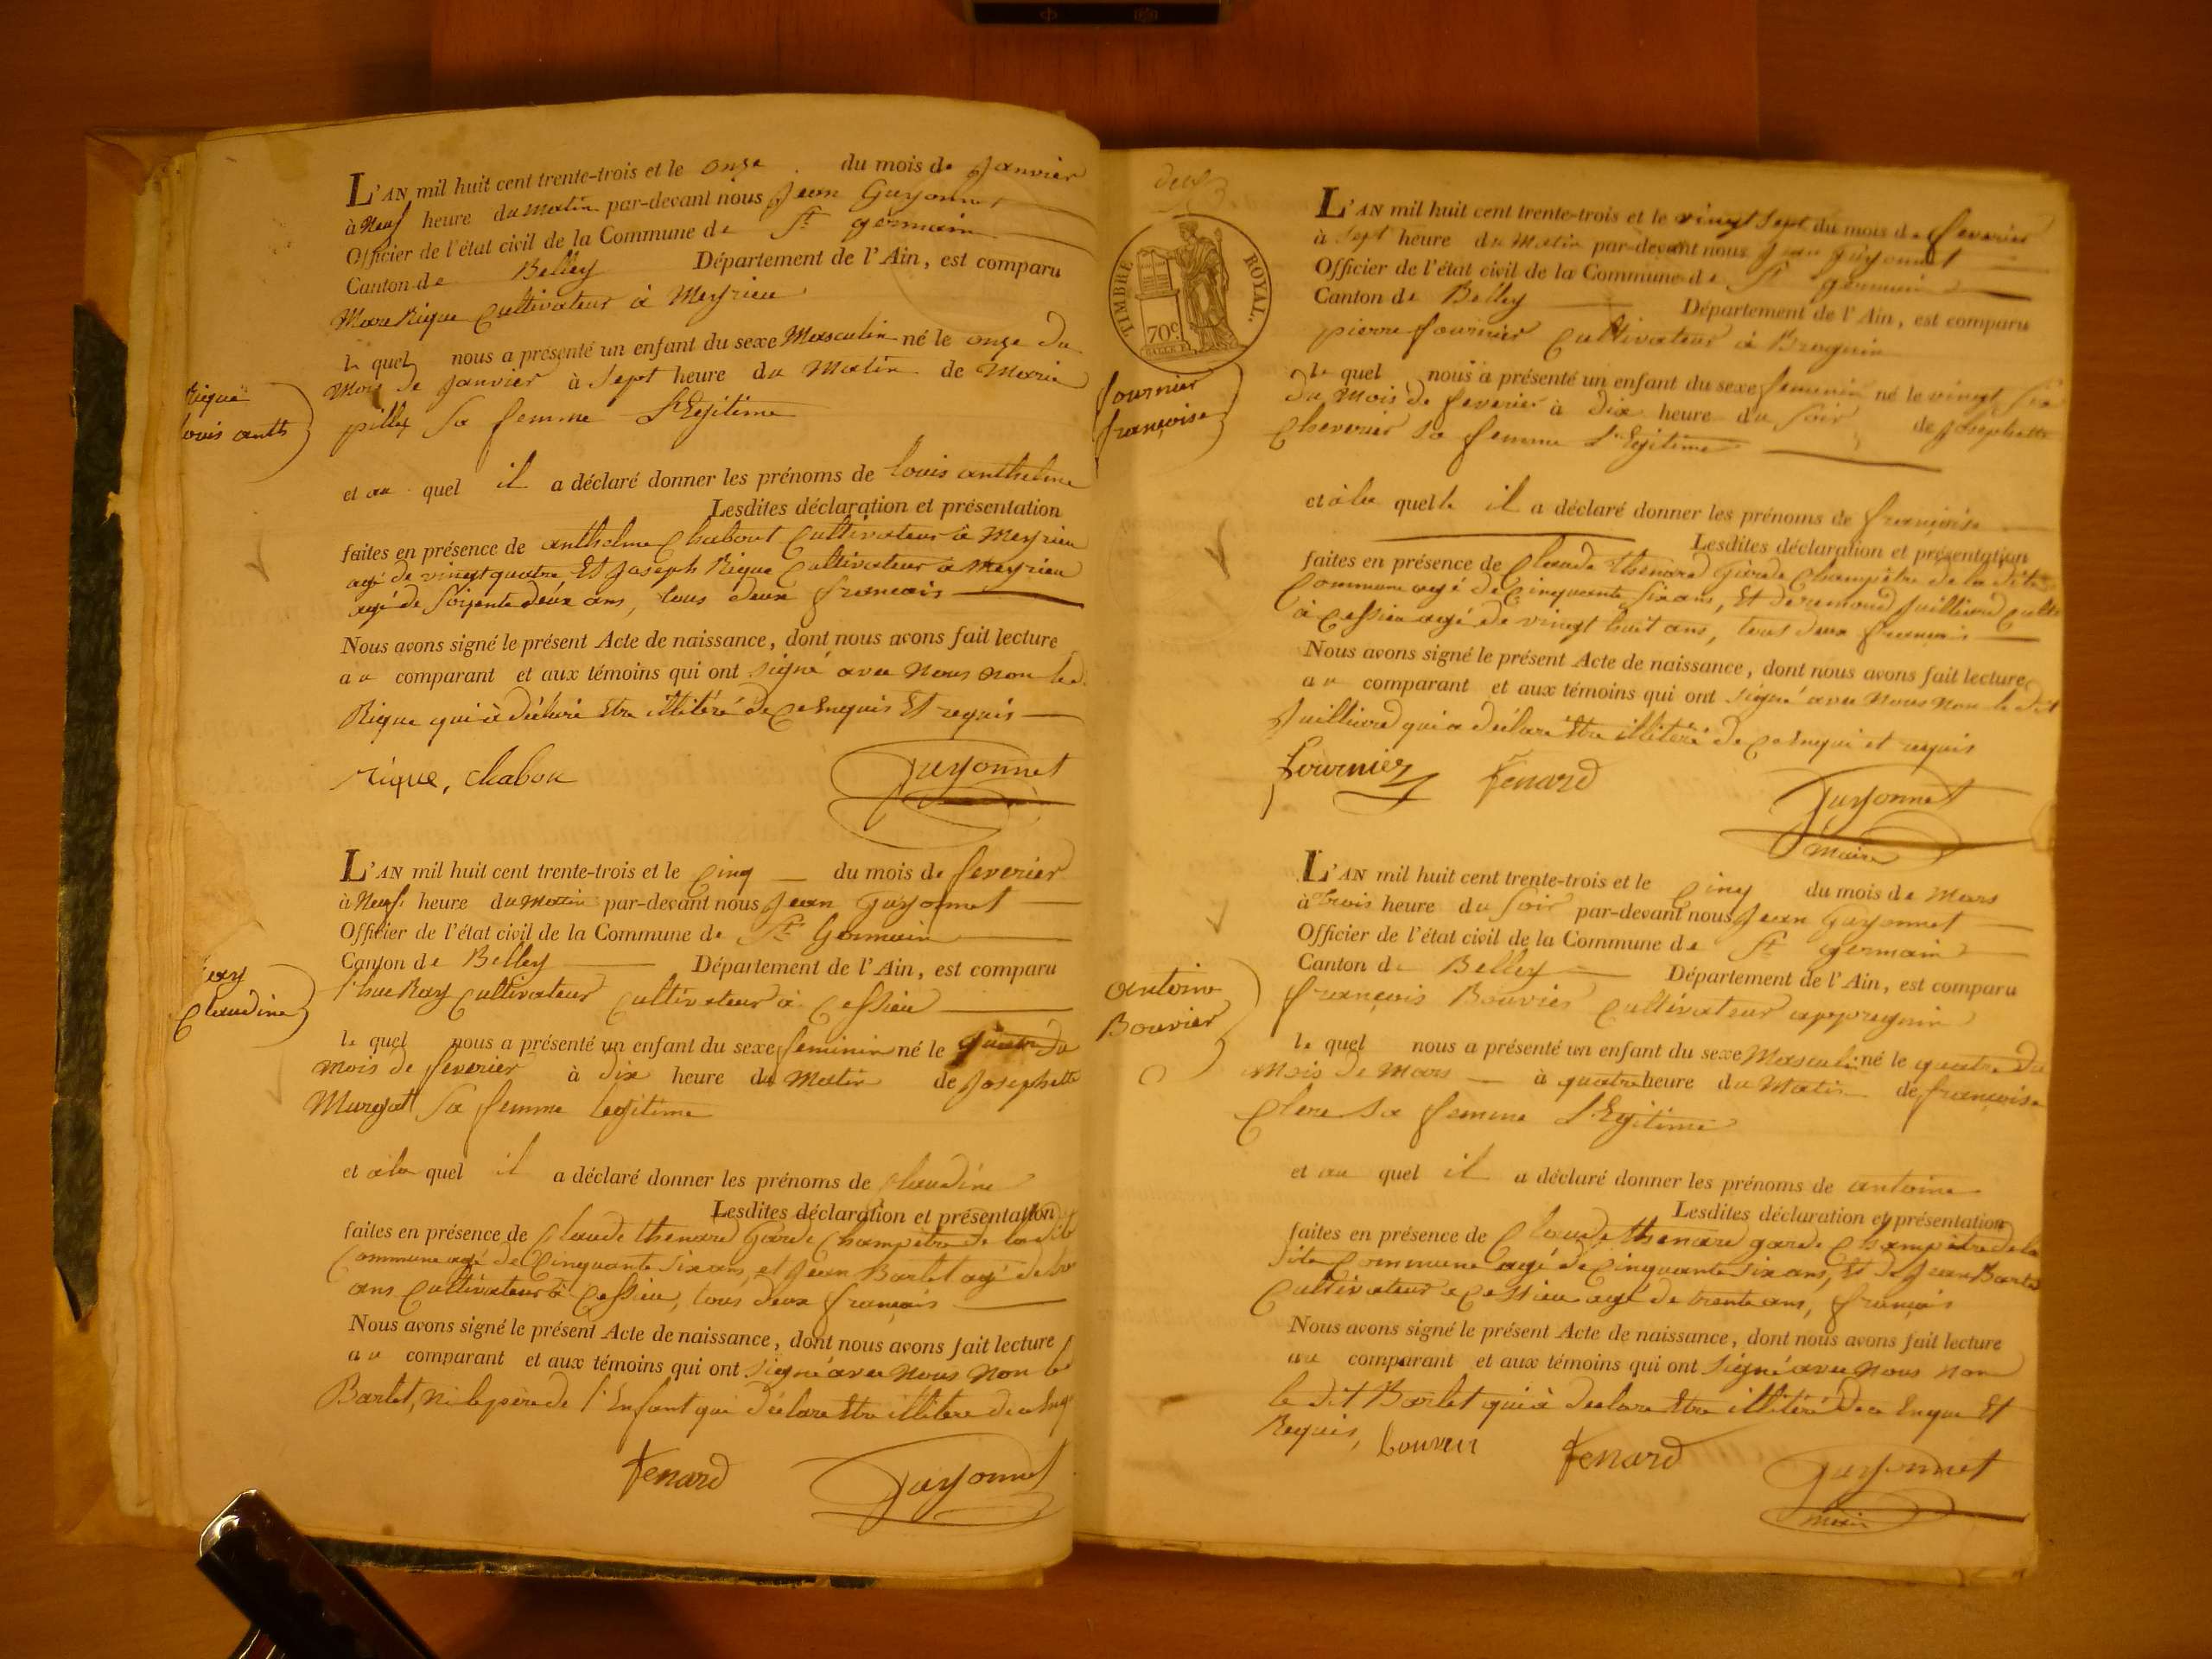 L'AN mil huit cent trente-trois et le onze du mois de Janvier
à Neuf heure du matin par-devant nous Jean Guyonnet
Officier de l'état civil de la Commune de St germain
Canton de Belley Département de l'Ain, est comparu
Marc Rique Cultivateur à Meyrieu
le quel nous a présenté un enfant du sexe Masculin né le onze du
Mois de Janvier à Sept heure du Matin de Marie
pillex Sa femme L'Egitime
Rique
louis anth
et au quel il a déclaré donner les prénoms de louis anthelme
Lesdites déclaration et présentation
faites en présence de anthelme Chabout Cultivateur à Meyrieu
agé de vingt quatre Et Joseph Rique Cultivateur a Meyrieu
agé de Soixente deux ans, tous deux francais
Nous avons signé le présent Acte de naissance, dont nous avons fait lecture
au comparant et aux témoins qui ont signé avec Nous non led.
Rique qui à déclaré Etre illitéré de ce Enquis Et requis
rique, chabou
Guyonnet
L'AN mil huit cent trente-trois et le Cinq du mois de feverier
à Neuf heure du Matin par-devant nous Jean Guyonnet
Officier de l'état civil de la Commune de St Germain
Canton de Belley Département de l'Ain, est comparu
Ray Cultivateur Cultivateur à Cessieu
Claudine
le quel nous a présenté un enfant du sexe feminin né le du
Mois de feverier à dix heure du Matin de Josephette
Murgat Sa femme legitime
et à la quel il a déclaré donner les prénoms de Claudine
Lesdites déclaration et présentation
faites en présence de Claude thenard Garde Champetre de la dite
Commune agé de Cinquante Six ans, et Jean Barlet agé de
ans Cultivateur à Cessieu, tous deux francais
Nous avons signé le présent Acte de naissance, dont nous avons fait lecture
au comparant et aux témoins qui ont signé avec Nous Non le
Barlet, Ni le père de l'Enfant qui déclare Etre illitere de ce Enq
fenard Guyonnet
TIMBRE ROYAL.
70c.
fournier
françoise
L'AN mil huit cent trente-trois et le vingt Sept du mois de feverier
à Sept heure du Matin par-devant nous Jean Guyonnet
Officier de l'état civil de la Commune de St germain
Canton de Belley Département de l'Ain, est comparu
pierre fournier Cultivateur à Brognin
le quel nous a présenté un enfant du sexe femenin né le vingt Six
du Mois de feverier à dix heure du Soir de Josephette
Cheverier Sa femme L'Egitime
et à la quelle il a déclaré donner les prénoms de françoise
Lesdites déclaration et présentation
faites en présence de Claude thenard Garde Champêtre de la dite
Commune agé de Cinquante Six ans, Et Juilliard Culti
à Cessieu agé de vingt huit ans, tous deux francais
Nous avons signé le présent Acte de naissance, dont nous avons fait lecture
au comparant et aux témoins qui ont signé avec Nous Non le dit
Juilliard qui a déclaré Etre illitéré de ce Enqui et requis
fournier fenard
Guyonnet
maire
L'AN mil huit cent trente-trois et le Cinq du mois de Mars
à trois heure du Soir par-devant nous Jean Guyonnet
Officier de l'état civil de la Commune de St germain
Canton de Belley Département de l'Ain, est comparu
antoine
Bouvier
françois Bouvier Cultivateur appregnin
le quel nous a présenté un enfant du sexe Masculi né le quatre du
Mois de Mars à quatre heure du Matin de françoise
Clere Sa femme L'Egitime
et au quel il a déclaré donner les prénoms de antoine
Lesdites déclaration et présentation
faites en présence de Claude thenard garde Champêtre de la
dite Commune agé de Cinquante Six ans, Et de Jean Barlet
Cultivateur a Cessieu agé de trente ans, francais
Nous avons signé le présent Acte de naissance, dont nous avons fait lecture
au comparant et aux témoins qui ont signé avec Nous Non
le dit Barlet qui à declare Etre illitéré de ce Enque Et
Requis, bouvier fenard
Guyonnet
maire